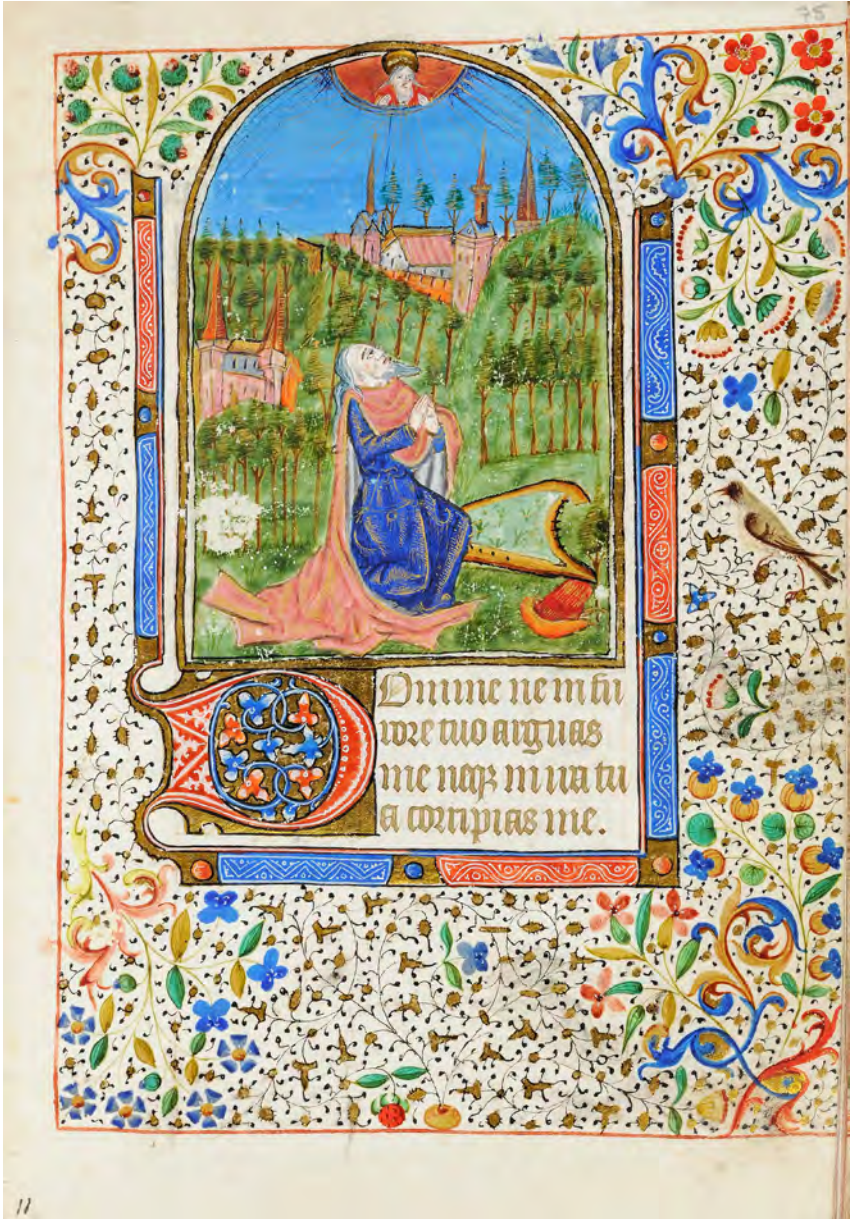 75
DOmine ne in fu
rore tuo arguas
me neqꝫ in ira tu
a corripias me.
11